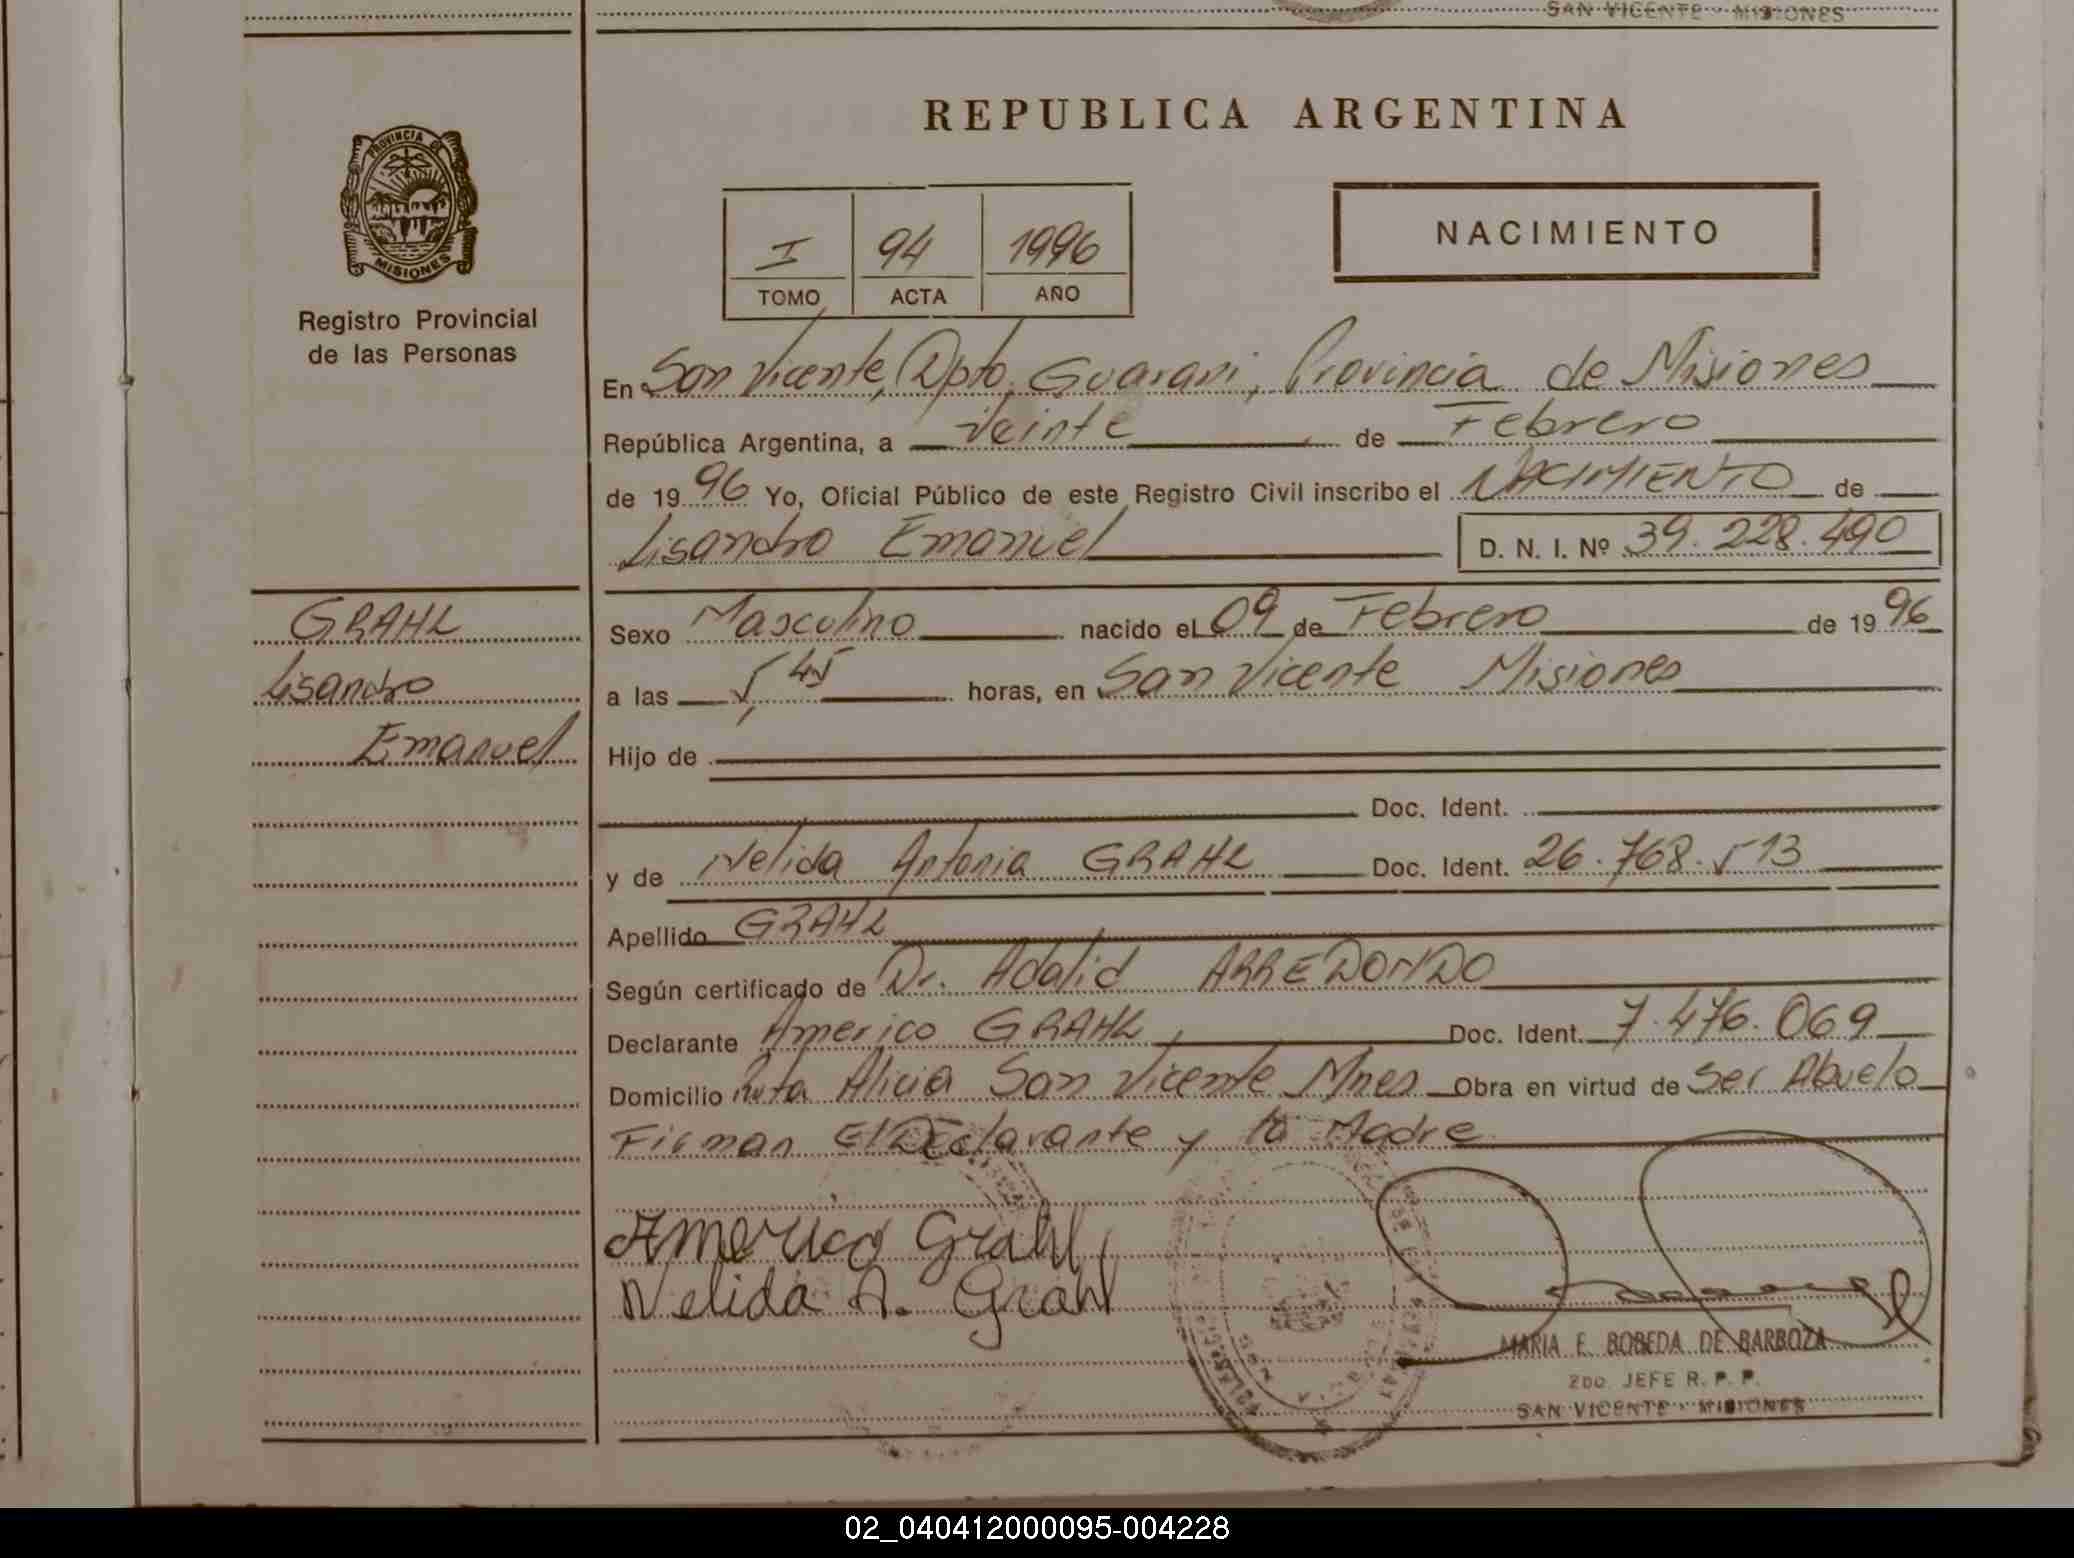 SAN VICENTE - MISIONES
PROVINCIA DE
MISIONES
Registro Provincial
de las Personas
REPUBLICA ARGENTINA
I 94 1996
TOMO ACTA AÑO
NACIMIENTO
En San Vicente, Dpto. Guarani, Provincia de Misiones
República Argentina, a Veinte de Febrero
de 1996 Yo, Oficial Público de este Registro Civil inscribo el NACIMIENTO de
Lisandro Emanuel D. N. I. Nº 39.228.490
GRAHL
Lisandro
Emanuel
Sexo Masculino nacido el 09 de Febrero de 1996
a las 5,45 horas, en San Vicente Misiones
Hijo de
Doc. Ident.
y de Nelida Antonia GRAHL Doc. Ident. 26.768.513
Apellido GRAHL
Según certificado de Dr. Adalid ARREDONDO
Declarante Americo GRAHL, Doc. Ident. 7.476.069
Domicilio Ruta Alicia San Vicente Mnes Obra en virtud de Ser Abuelo
Firman El Declarante y la Madre
Americo Grahl
Nelida A. Grahl
MARIA E. BOBEDA DE BARBOZA
2DO. JEFE R. P. P.
SAN VICENTE - MISIONES
02_040412000095-004228